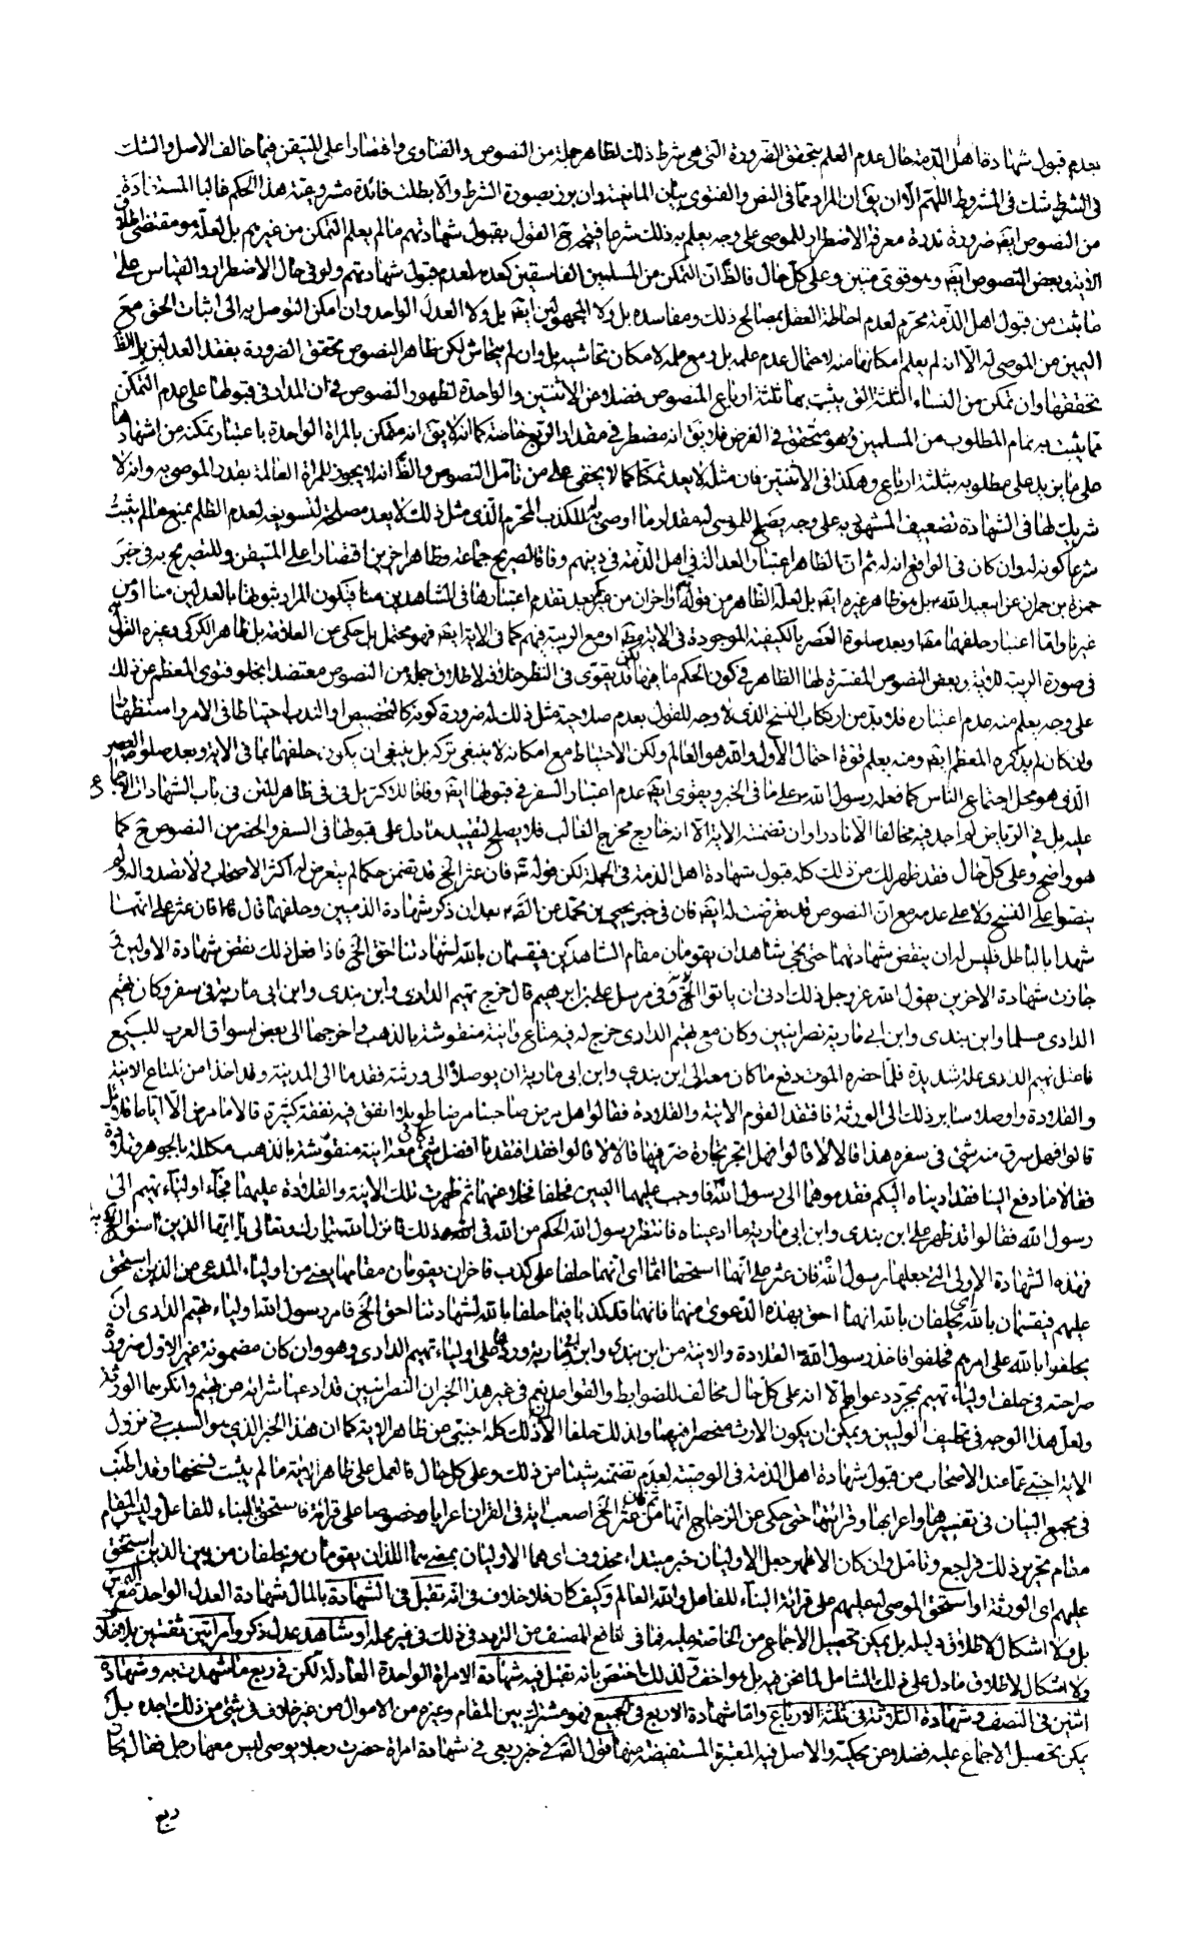 بعدم قبول شهادة اهل الذمة حال عدم العلم بتحقق الضرورة التي هي شرط ذلك لظاهر جملة من النصوص والفتاوى واقتصارا على المتيقن فيما خالف الاصل والشك
في الشرط شك في المشروط اللهم الا ان يق ان المراد مما في النص والفتوى بيان الماهية وان برز بصورة الشرط والا بطلت فائدة مشروعية هذا الحكم غالبا المستفادة
من النصوص ايضا ضرورة ندرة معرفة الاضطرار للموصى على وجه يعلم به ذلك شرعا فيتجه ح القول بقبول شهادتهم ما لم يعلم التمكن من غيرهم بل لعله هو مقتضى اطلاق
الاية وبعض النصوص ايضا وهو قوى متين وعلى كل حال فالظ ان التمكن من المسلمين الفاسقين كعدمه لعدم قبول شهادتهم ولو في حال الاضطرار والقياس على
ما ثبت من قبول اهل الذمة محرم لعدم احاطة العقل بمصالح ذلك ومفاسده بل ولا المجهولين ايضا بل ولا العدل الواحد وان امكن التوصل به الى اثبات الحق مع
اليمين من الموصى له الا انه لم يعلم امكانها منه لاحتمال عدم علمه بل ومع علمه لامكان تحاشيه بل وان لم يتحاش لكن ظاهر النصوص تحقق الضرورة بفقد العدلين بل الظ
تحققها وان تمكن من النساء الثلثة التي يثبت بها ثلثة ارباع المنصوص فضلا عن الاثنتين والواحدة لظهور النصوص في ان المدار في قبولها على عدم التمكن
مما يثبت به تمام المطلوب من المسلمين وهو متحقق في الفرض فلا يق انه مضطر في مقدار الربع خاصة كما انه لا يق انه متمكن بالمراة الواحدة باعتبار تمكنه من اشهادها
على ما يزيد على مطلوبه بثلثة ارباع وهكذا في الاثنتين فان مثله لا يعد تمكنا كما لا يخفى على من تامل النصوص والظ انه لا يجوز للمراة العالمة بقدر الموصى به وانه لا
شريك لها في الشهادة تضعيف المشهود به على وجه يصح للموصى له مقدار ما اوصى به للكذب المحرم الذي مثل ذلك لا يعد مصلحة لتسويغه لعدم الظلم بمنع ما لم يثبت
شرعا كونه له وان كان في الواقع انه له ثم ان الظاهر اعتبار العدالة في اهل الذمة في دينهم وفاقا لصريح جماعة وظاهر اخرين اقتصارا على المتيقن وللتصريح به في خبر
حمزة بن حمران عن ابي عبد الله ع بل هو ظاهر غيره ايضا بل لعله الظاهر من قوله تع او اخران من غيركم بعد تقدم اعتبارها في الشاهدين منا فيكون المراد ثبوتها بالعدلين منا او من
غيرنا واما اعتبار حلفهما مطلقا وبعد صلوة العصر بالكيفية الموجودة في الاية مطلقا او مع الريبة فيهم كما في الاية ايضا فهو محتمل بل حكي عن العلامة بل ظاهر الكركي وغيره القول به
في صورة الريبة للاية وبعض النصوص المفسرة لها الظاهر في كون الحكم ما فيها لكن قد يتقوى في النظر خلافه لاطلاق جملة من النصوص معتضدا بخلو فتوى المعظم عن ذلك
على وجه يعلم منه عدم اعتباره فلا بد من ارتكاب النسخ الذي لا وجه للقول بعدم صلاحية مثل ذلك له ضرورة كونه كالتخصيص او الندب احتياطا في الامر واستظهارا
وان كان لم يذكره المعظم ايضا ومنه يعلم قوة احتمال الاول والله هو العالم ولكن الاحتياط مع امكانه لا ينبغي تركه بل ينبغي ان يكون حلفهما بما في الاية وبعد صلوة العصر
الذي هو محل اجتماع الناس كما فعله رسول الله ص على ما في الخبر ويقوى ايضا عدم اعتبار السفر في قبولها ايضا وفاقا للاكثر بل في ظاهر المتن في باب الشهادات الاجماع
عليه بل في الرياض لم اجد فيه مخالفا الا نادرا وان تضمنته الاية الا انه خارج مخرج الغالب فلا يصلح لتقييد ما دل على قبولها في السفر والحضر من النصوص ح كما
هو واضح وعلى كل حال فقد ظهر لك من ذلك كله قبول شهادة اهل الذمة في الجملة لكن قوله تع فان عثر الخ قد تضمن حكما لم يتعرض له اكثر الاصحاب ولا نقدوا له ولم
ينصوا على النسخ ولا على عدمه مع ان النصوص قد تعرضت له ايضا فان في خبر يحيى بن محمد عن الص ع بعد ان ذكر شهادة الذميين وحلفهما قال ع فان عثر على انهما
شهدا بالباطل فليس له ان ينقض شهادتهما حتى يجئ شاهدان يقومان مقام الشاهدين فيقسمان بالله لشهادتنا احق الخ فاذا فعل ذلك نقض شهادة الاولين و
جازت شهادة الاخرين بقول الله عز وجل ذلك ادنى ان ياتوا الخ وفي مرسل علي بن ابراهيم قال خرج تميم الدارى وابن بندى وابن ابي مارية في سفر وكان تميم
الدارى مسلما وابن بندى وابن ابي مارية نصرانيين وكان مع تميم الدارى خرج له فيه متاع وانية منقوشة بالذهب واخرجها الى بعض اسواق العرب للبيع
فاعتل تميم الدارى علة شديدة فلما حضره الموت دفع ما كان معه الى ابن بندي وابن ابي مارية ان يوصلاه الى ورثته فقدما الى المدينة وقد اخذا من المتاع الانية
والقلادة واوصلا ساير ذلك الى الورثة فافتقد القوم الانية والقلادة فقالوا هل مرض صاحبنا مرضا طويلا انفق فيه نفقة كثيرة قالا ما مرض الا اياما قلائل
قالوا فهل سرق منه شئ في سفره هذا قالا لا قالوا فهل اتجر تجارة خسر فيها قالا لا قالوا فقد افتقدنا افضل شئ كان معه انية منقوشة بالذهب مكللة بالجوهر وقلادة
فقالا ما دفع الينا فقد اديناه اليكم فقدموهما الى رسول الله فاوجب عليهما اليمين فحلفا فخلا عنهما ثم ظهرت تلك الانية والقلادة عليهما فجاء اولياء تميم الى
رسول الله فقالوا قد ظهر على ابن بندى وابن ابي مارية ما ادعيناه فانتظر رسول الله الحكم من الله في ذلك فانزل الله تبارك وتعالى يا ايها الذين امنوا الخ
فهذه الشهادة الاولى التي جعلها رسول الله فان عثر على انهما استحقا اثما اى انهما حلفا على كذب فاخران يقومان مقامهما يعني من اولياء المدعي من الذين استحق
عليهم فيقسمان بالله اى يحلفان بالله انهما احق بهذه الدعوى منهما فانهما قد كذبا فيما حلفا بالله لشهادتنا احق الخ فامر رسول الله اولياء تميم الدارى ان
يحلفوا بالله على امرهم فحلفوا فاخذ رسول الله القلادة والانية من ابن بندى وابن ابي مارية وردها على اولياء تميم الدارى وهو وان كان مضمونه غير الاول ضرورة
صراحته في حلف اولياء تميم بمجرد دعواهم الا انه على كل حال مخالف للضوابط والقواعد نعم في غير هذا الخبر ان النصرانيين قد ادعيا شرائه من تميم وانكرهما الورثة
ولعل هذا الوجه في تحليف الوليين ويمكن ان يكون الارث منحصرا فيهما ولذلك حلفا الا ان ذلك كله اجنبي عن ظاهر الاية كما ان هذا الخبر الذي هو السبب في نزول
الاية اجنبى عما عند الاصحاب من قبول شهادة اهل الذمة في الوصية لعدم تضمنه شيئا من ذلك وعلى كل حال فالعمل على ظاهر الاية ما لم يثبت نسخها وقد اطنب
في مجمع البيان في تفسيرها واعرابها وقرائتها حتى حكى عن الزجاج انها من قوله فان عثر الخ اصعب اية في القران اعرابا وخصوصا على قرائة استحق بالبناء للفاعل وليس المقام
مقام تحرير ذلك فراجع وتامل وان كان الاظهر جعل الاوليان خبر مبتداء محذوف اى هما الاوليان بمعنى هما اللذان يقومان ويحلفان من بين الذين استحق
عليهم اى الورثة او استحق الموصى له عليهم على قرائة البناء للفاعل والله العالم وكيف كان فلا خلاف في انه تقبل في الشهادة بالمال شهادة العدل الواحد مع اليمين
بل ولا اشكال لاطلاق دليله بل يمكن تحصيل الاجماع من الخاصة عليه فما في نافع المصنف من التردد في ذلك في غير محله او شاهد عدل ذكر وامراتين ثقتين بلا خلاف
ولا اشكال لاطلاق ما دل على ذلك الشامل لما نحن فيه بل هو اخف ولذلك اختص بانه تقبل فيه شهادة الامراة الواحدة العادلة لكن في ربع ما شهدت به وشهادة
اثنتين في النصف وشهادة الثلاثة في ثلثة الارباع واما شهادة الاربع في الجميع فهو مشترك بين المقام وغيره من الاموال من غير خلاف في شئ من ذلك اجده بل
يمكن تحصيل الاجماع عليه فضلا عن محكيه والاصل فيه المعتبرة المستفيضة منها قول الص ع في خبر ربعي في شهادة امراة حضرت رجلا يوصى ليس معها رجل فقال يجاز
ربع